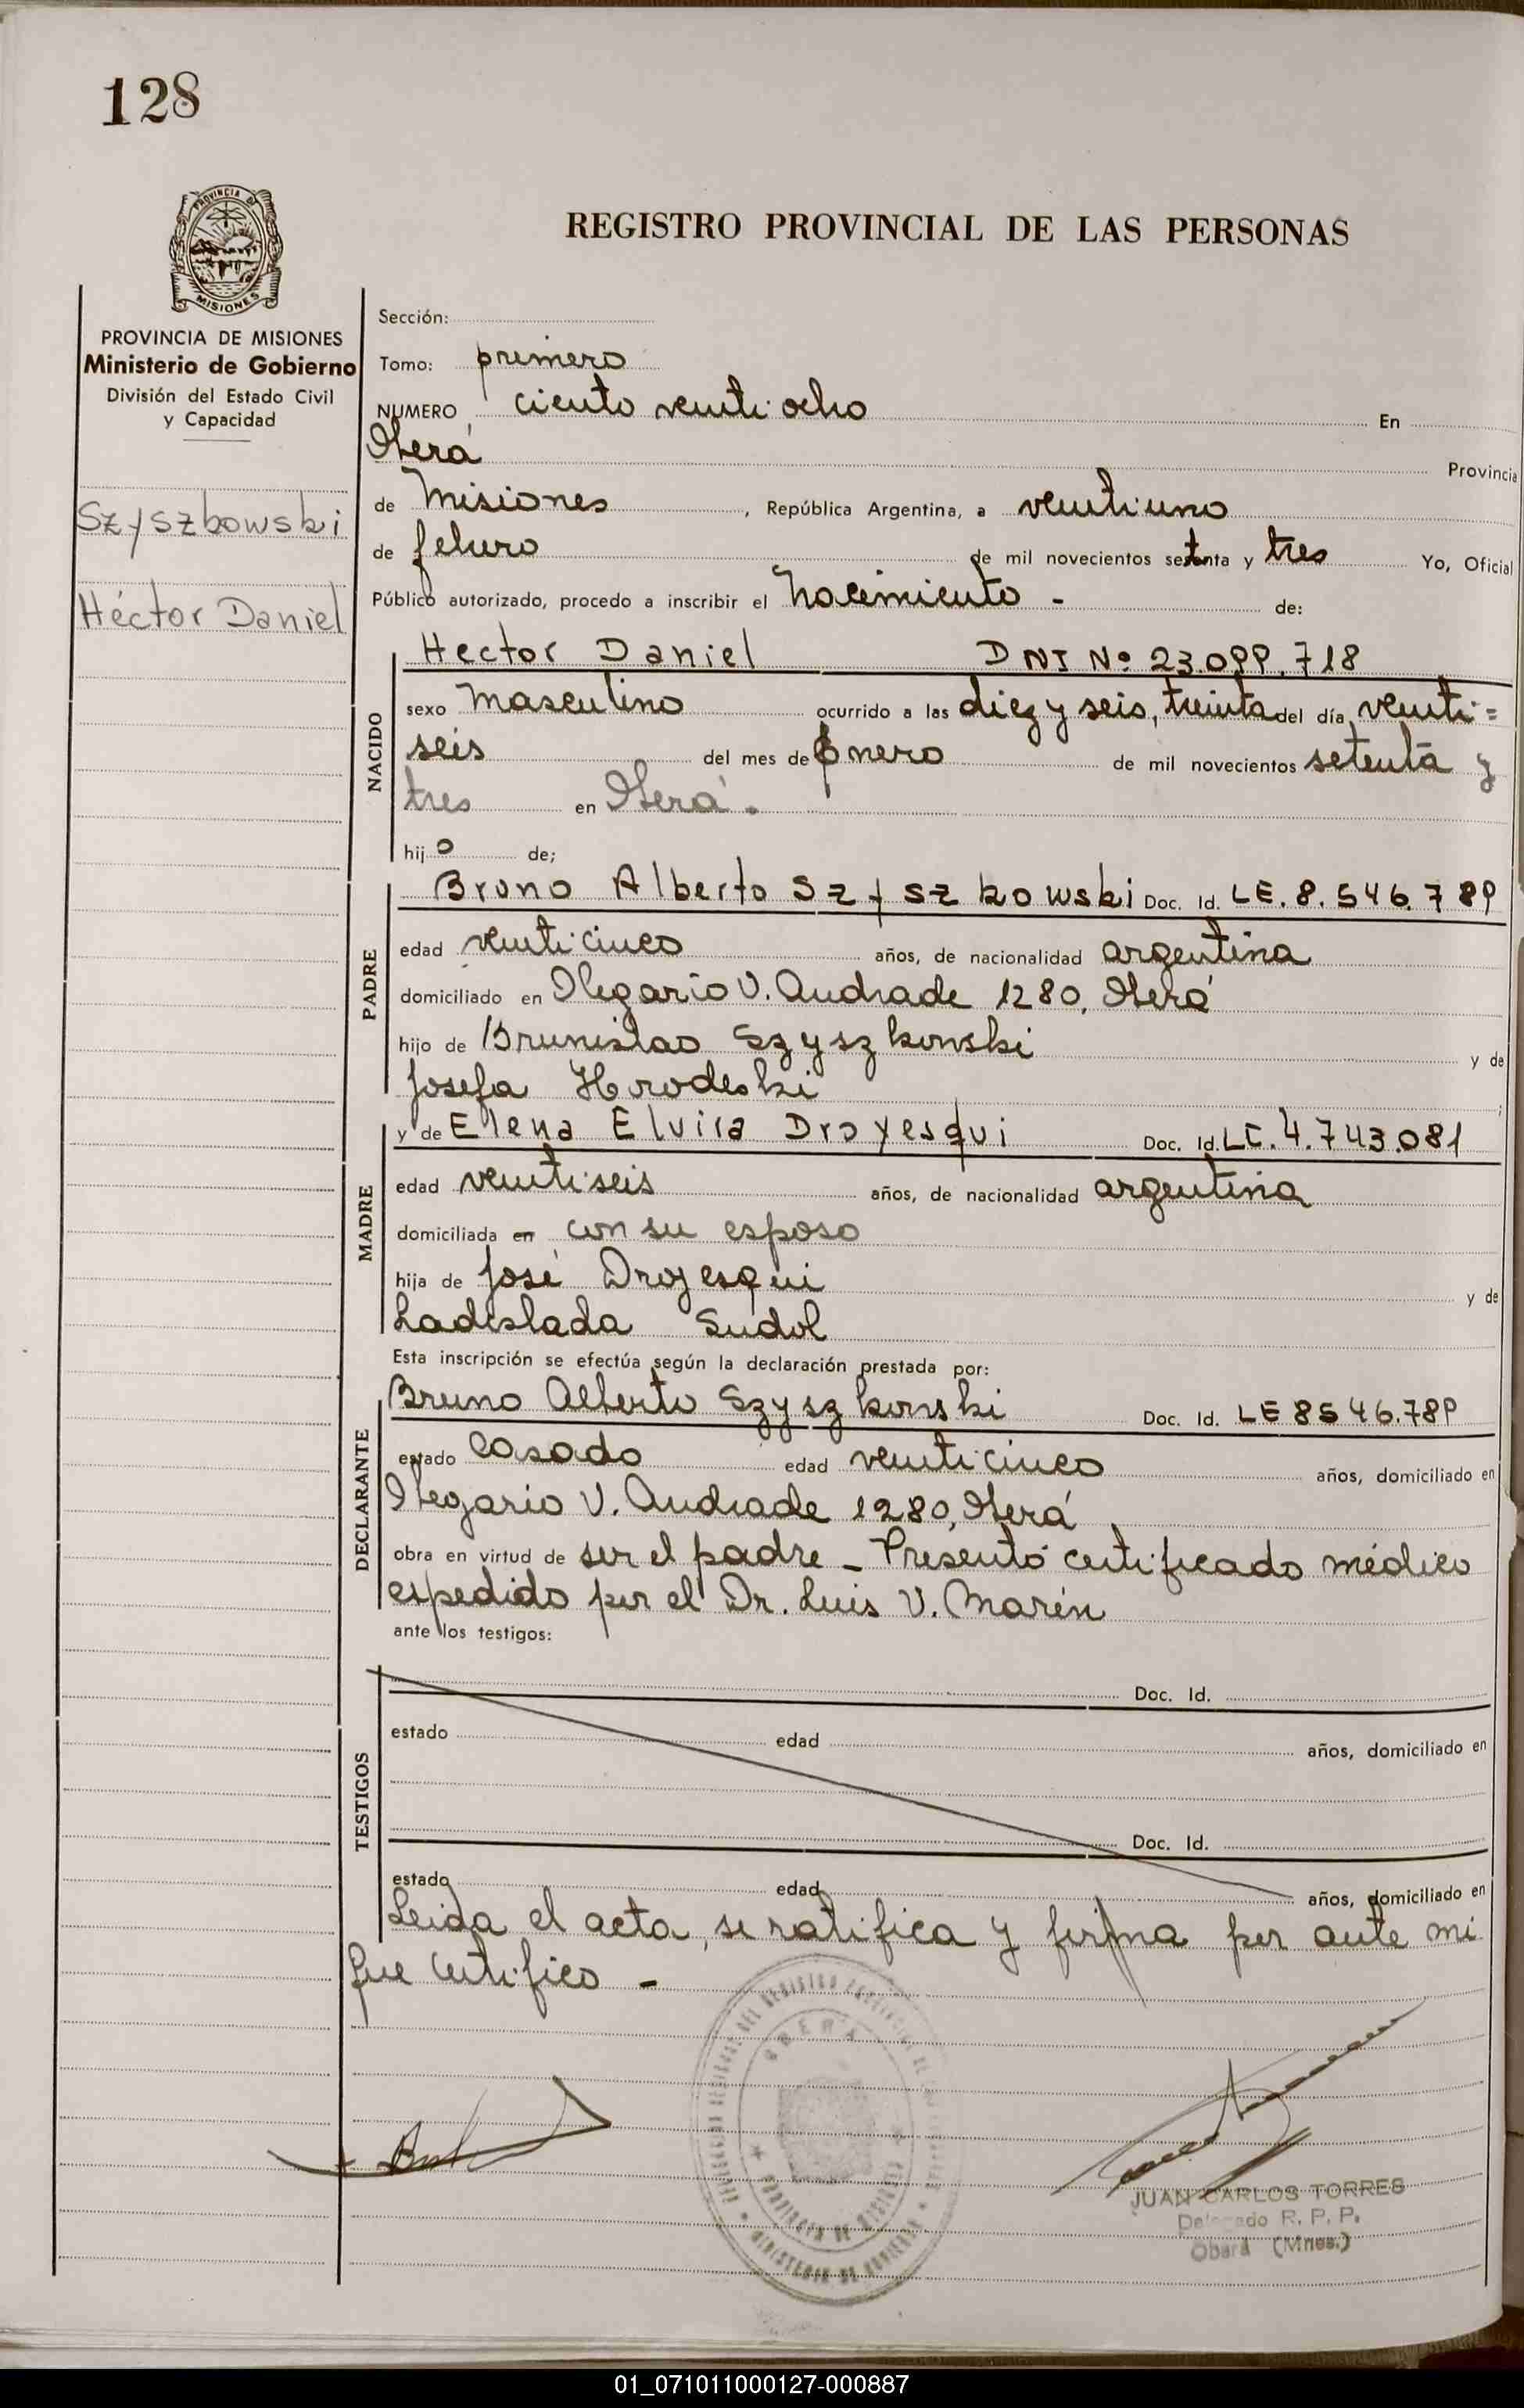 128
PROVINCIA DE
MISIONES
REGISTRO PROVINCIAL DE LAS PERSONAS
PROVINCIA DE MISIONES
Ministerio de Gobierno
División del Estado Civil
y Capacidad
Szyszkowski
Héctor Daniel
Sección:
Tomo: primero
NUMERO ciento veinti ocho En
Oberá Provincia
de Misiones, República Argentina, a veintiuno
de febrero de mil novecientos setenta y tres Yo, Oficial
Público autorizado, procedo a inscribir el nacimiento - de:
NACIDO
Hector Daniel DNI Nº 23.099.718
sexo masculino ocurrido a las diez y seis, treinta del día veinti=
seis del mes de Enero de mil novecientos setenta y
tres en Oberá.
hij o de;
PADRE
Bruno Alberto Szyszkowski Doc. Id. LE. 8.546.789
edad veinticinco años, de nacionalidad argentina
domiciliado en Olegario V. Andrade 1280, Oberá
hijo de Brunislao Szyszkowski y de
Josefa Horodeski
MADRE
y de Elena Elvira Droyesqui Doc. Id. LC. 4.743.081
edad veintiseis años, de nacionalidad argentina
domiciliada en con su esposo
hija de José Droyesqui y de
Ladislada Sudol
Esta inscripción se efectúa según la declaración prestada por:
DECLARANTE
Bruno Alberto Szyszkowski Doc. Id. LE 8546.789
estado casado edad veinticinco años, domiciliado en
Olegario V. Andrade 1280, Oberá
obra en virtud de ser el padre - Presentó certificado médico
espedido por el Dr. Luis V. Marén
ante los testigos:
TESTIGOS
Doc. Id.
estado edad años, domiciliado en
Doc. Id.
estado edad años, domiciliado en
Leida el acta, se ratifica y firma por ante mi
que certifico -
OBERA
PROVINCIA DE MISIONES
MINISTERIO DE GOBIERNO
JUAN CARLOS TORRES
Delegado R. P. P.
Oberá (Mnes.)
01_071011000127-000887